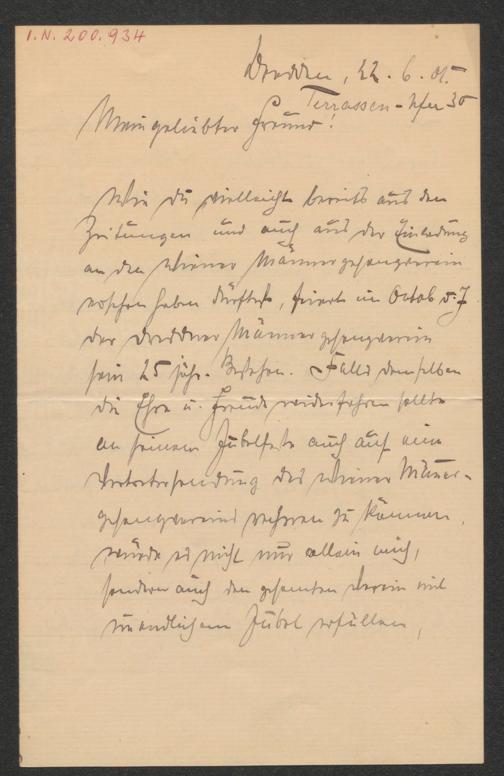 I.N. 200.934
Dresden, 22.6.05.
Terrassen-Ufer 30
Mein geliebter Freund!
Wie du vielleicht bereits aus den
Zeitungen und auch aus der Einladung
an den Wiener Männergesangverein
ersehen haben dürftest, feiert im Octob. d. J.
der Dresdner Männergesangverein
sein 25 jähr. Bestehen. Falls demselben
die Ehre u. Freude widerfahren sollte
an seinem Jubelfeste auch auf eine
des Wiener Männer-
gesangvereins rechnen zu können,
würde es nicht nur allein mich,
sondern auch den gesamten Verein mit
unendlichem Jubel erfüllen,